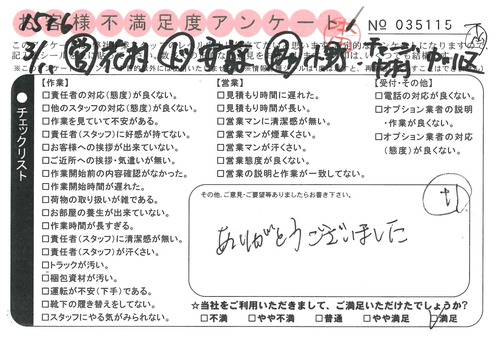 お客様不満足度アンケート
No 035115
【作業】
□責任者の対応(態度)が良くない。
□他のスタッフの対応(態度)が良くない。
□作業を見ていて不安がある。
□責任者(スタッフ)に好感が持てない。
□お客様への挨拶が出来ていない。
□ご近所への挨拶・気遣いが無い。
□作業開始前の内容確認がなかった。
□作業開始時間が遅れた。
□荷物の取り扱いが雑である。
□お部屋の養生が出来ていない。
□作業時間が長すぎる。
□責任者(スタッフ)に清潔感が無い。
□責任者(スタッフ)が汗くさい。
□トラックが汚い。
□梱包資材が汚い。
□運転が不安(下手)である。
□靴下の履き替えをしてない。
□スタッフにやる気がみられない。
【営業】
□見積もり時間に遅れた。
□見積もり時間が長い。
□営業マンに清潔感が無い。
□営業マンが煙草くさい。
□営業マンが汗くさい。
□営業態度が良くない。
□営業の説明と作業が一致してない。
【受付・その他】
□電話の対応が良くない。
□オプション業者の説明
・作業が良くない。
□オプション業者の対応
(態度)が良くない。
●チェックリスト
その他、ご意見・ご要望等ありましたらお書き下さい。
ありがとうございました
☆当社をご利用いただきまして、ご満足いただけたでしょうか?
□不満 □やや不満 □普通 □やや満足 □満足